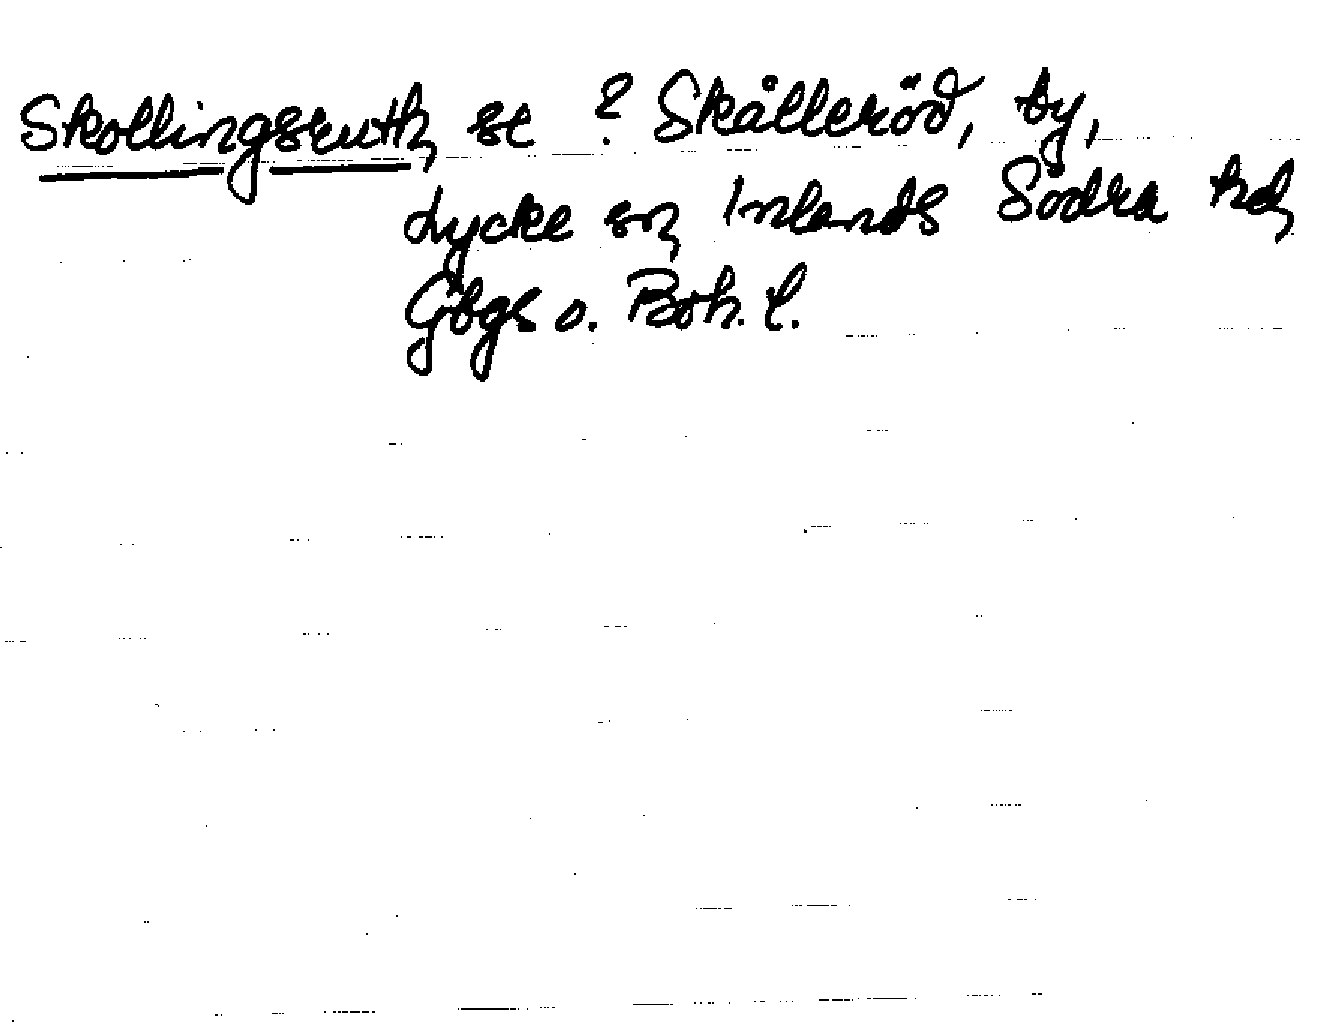 Skollingsruth, se ? Skålleröd, by,
Lycke sn, Inlands Södra hd,
Gbgs o. Boh. l.